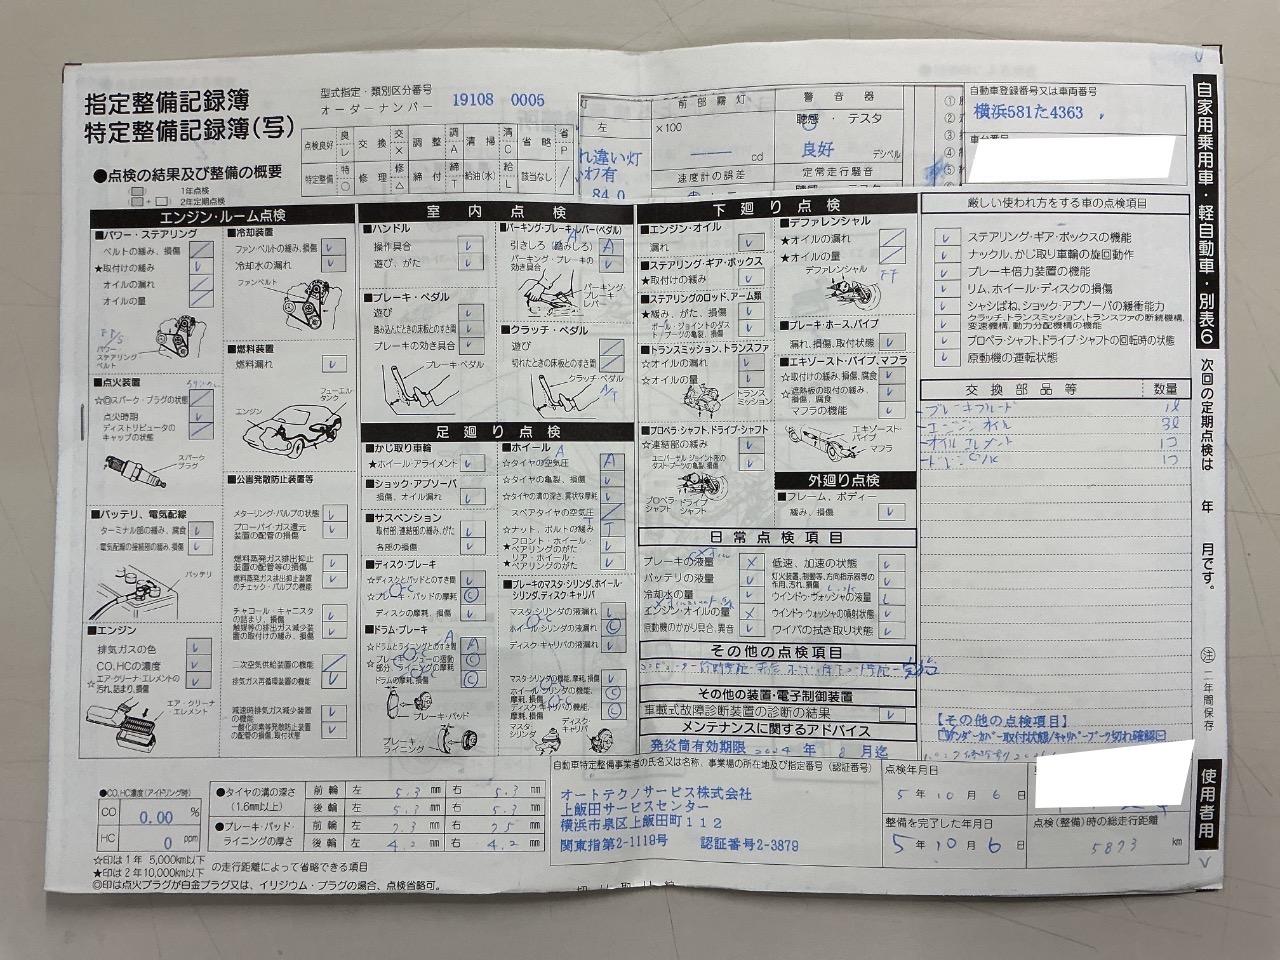 指定整備記録簿
特定整備記録簿(写)
型式指定・類別区分番号
オーダーナンバー
19108 0005
点検良好 良 レ 交換 交 × 調整 調 A 清掃 清 C 省略 省 P
特定整備 特 ○ 修理 修 △ 締付 締 T 給油(水) 給 L 該当なし ╱
●点検の結果及び整備の概要
1年点検
2年定期点検
左
れ違い灯
84.0
前部霧灯
×100
cd
速度計の誤差
警音器
聴感・テスタ
良好
デシベル
定常走行騒音
自動車登録番号又は車両番号
横浜581た4363
自家用乗用車・軽自動車・別表6
次回の定期点検は 年 月です。
注 二年間保存
使用者用
エンジン・ルーム点検
■パワー・ステアリング
ベルトの緩み、損傷
★取付けの緩み
オイルの漏れ
オイルの量
パワーステアリングベルト
■点火装置
☆◎スパーク・プラグの状態
点火時期
ディストリビュータのキャップの状態
スパークプラグ
■バッテリ、電気配線
ターミナル部の緩み、腐食
電気配線の接続部の緩み、損傷
バッテリ
■エンジン
排気ガスの色
CO、HCの濃度
☆エア・クリーナ・エレメントの汚れ、詰まり、損傷
エア・クリーナエレメント
■冷却装置
ファン・ベルトの緩み、損傷
冷却水の漏れ
ファンベルト
■燃料装置
燃料漏れ
フューエルタンク
エンジン
■公害発散防止装置等
メターリング・バルブの状態
ブローバイ・ガス還元装置の配管の損傷
燃料蒸発ガス排出抑止装置の配管等の損傷
燃料蒸発ガス排出抑止装置のチェック・バルブの機能
チャコール・キャニスタの詰まり、損傷
触媒等の排出ガス減少装置の取付けの緩み、損傷
二次空気供給装置の機能
排気ガス再循環装置の機能
減速時排気ガス減少装置の機能
一酸化炭素等発散防止装置の配管の損傷、取付状態
室内点検
■ハンドル
操作具合
遊び、がた
■ブレーキ・ペダル
遊び
踏み込んだときの床板とのすき間
ブレーキの効き具合
ブレーキ・ペダル
■パーキング・ブレーキ・レバー(ペダル)
引きしろ(踏みしろ) A
パーキング・ブレーキの効き具合
パーキングブレーキレバー
■クラッチ・ペダル
遊び
切れたときの床板とのすき間
クラッチ・ペダル
A/T
足廻り点検
■かじ取り車輪
★ホイール・アライメント
■ショック・アブソーバ
損傷、オイル漏れ
■サスペンション
取付部、連結部の緩み、がた
各部の損傷
■ディスク・ブレーキ
☆ディスクとパッドとのすき間
☆ブレーキ・パッドの摩耗 C
ディスクの摩耗、損傷
■ドラム・ブレーキ
☆ドラムとライニングとのすき間 A
☆ブレーキ・シューの摺動部分、ライニングの摩耗 C
ドラムの摩耗、損傷 C
ブレーキ・パッド
ブレーキライニング
■ホイール
☆タイヤの空気圧 A
☆タイヤの亀裂、損傷
☆タイヤの溝の深さ、異状な摩耗
スペアタイヤの空気圧
☆ナット、ボルトの緩み T
★フロント・ホイール・ベアリングのがた
★リア・ホイール・ベアリングのがた
■ブレーキのマスタ・シリンダ、ホイール・シリンダ、ディスク・キャリパ
マスタ・シリンダの液漏れ
ホイール・シリンダの液漏れ C
ディスク・キャリパの液漏れ
マスタ・シリンダの機能、摩耗、損傷
ホイール・シリンダの機能、摩耗、損傷 C
ディスク・キャリパの機能、摩耗、損傷 C
マスタシリンダ
ディスク・キャリパ
下廻り点検
■エンジン・オイル
漏れ
■ステアリング・ギア・ボックス
★取付けの緩み
■ステアリングのロッド、アーム類
★緩み、がた、損傷
ボール・ジョイントのダスト・ブーツの亀裂、損傷
■トランスミッション、トランスファ
☆オイルの漏れ
☆オイルの量
トランスミッション
■プロペラ・シャフト、ドライブ・シャフト
☆連結部の緩み
ユニバーサル・ジョイント部のダスト・ブーツの亀裂、損傷
プロペラシャフト
ドライブシャフト
■デファレンシャル
★オイルの漏れ
★オイルの量
デファレンシャル
FF
■ブレーキ・ホース、パイプ
漏れ、損傷、取付状態
■エキゾースト・パイプ、マフラ
☆取付けの緩み、損傷、腐食
☆遮熱板の取付けの緩み、損傷、腐食
マフラの機能
エキゾーストパイプ
マフラ
外廻り点検
■フレーム、ボディー
緩み、損傷
日常点検項目
ブレーキの液量 ×
バッテリの液量
冷却水の量
エンジン・オイルの量 ×
原動機のかかり具合、異音
低速、加速の状態
灯火装置、制動等、方向指示器等の作用、汚れ、損傷
ウインドウ・ウォッシャの液量 L
ウインドウ・ウォッシャの噴射状態
ワイパの拭き取り状態
その他の点検項目
その他の装置・電子制御装置
車載式故障診断装置の診断の結果
メンテナンスに関するアドバイス
発炎筒有効期限 2024年 8月迄
厳しい使われ方をする車の点検項目
ステアリング・ギア・ボックスの機能
ナックル、かじ取り車輪の旋回動作
ブレーキ倍力装置の機能
リム、ホイール・ディスクの損傷
シャシばね、ショック・アブソーバの緩衝能力
クラッチ、トランスミッション、トランスファの断続機構、変速機構、動力分配機構の機能
プロペラ・シャフト、ドライブ・シャフトの回転時の状態
原動機の運転状態
交換部品等 数量
ブレーキフルード 1ℓ
エンジンオイル 3ℓ
オイルエレメント 1コ
ドレンパッキン 1コ
【その他の点検項目】
アンダーカバー取付状態/キャリパーブーツ切れ確認
●CO、HC濃度(アイドリング時)
CO 0.00 %
HC 0 ppm
●タイヤの溝の深さ(1.6mm以上)
前輪 左 5.3 mm 右 5.3 mm
後輪 左 5.3 mm 右 5.3 mm
●ブレーキ・パッド・ライニングの厚み
前輪 左 7.3 mm 右 7.5 mm
後輪 左 4.2 mm 右 4.2 mm
☆印は1年 5,000km以下
★印は2年10,000km以下 の走行距離によって省略できる項目
◎印は点火プラグが白金プラグ又は、イリジウム・プラグの場合、点検省略可。
自動車特定整備事業者の氏名又は名称、事業場の所在地及び指定番号(認証番号)
オートテクノサービス株式会社
上飯田サービスセンター
横浜市泉区上飯田町112
関東指第2-1119号 認証番号2-3879
点検年月日
5年10月6日
整備を完了した年月日
5年10月6日
点検(整備)時の総走行距離
5873 km